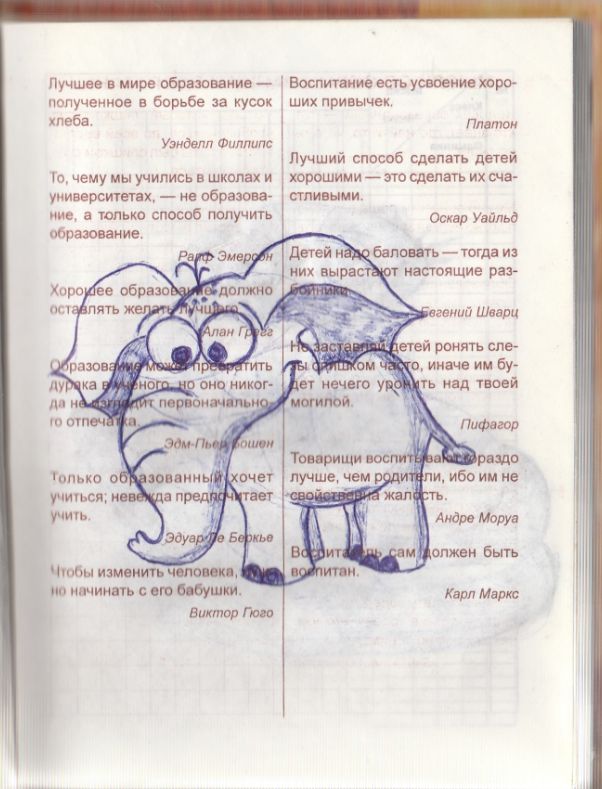 Лучшее в мире образование —
полученное в борьбе за кусок
хлеба.
Уэнделл Филлипс
То, чему мы учились в школах и
университетах, — не образова-
ние, а только способ получить
образование.
Ралф Эмерсон
Хорошее образование должно
оставлять желать лучшего.
Алан Грегг
Образование может превратить
дурака в ученого, но оно никог-
да не изгладит первоначально-
го отпечатка.
Эдм-Пьер Бошен
Только образованный хочет
учиться; невежда предпочитает
учить.
Эдуар Ле Беркье
Чтобы изменить человека, нуж-
но начинать с его бабушки.
Виктор Гюго
Воспитание есть усвоение хоро-
ших привычек.
Платон
Лучший способ сделать детей
хорошими — это сделать их сча-
стливыми.
Оскар Уайльд
Детей надо баловать — тогда из
них вырастают настоящие раз-
бойники.
Евгений Шварц
Не заставляй детей ронять сле-
зы слишком часто, иначе им бу-
дет нечего уронить над твоей
могилой.
Пифагор
Товарищи воспитывают гораздо
лучше, чем родители, ибо им не
свойственна жалость.
Андре Моруа
Воспитатель сам должен быть
воспитан.
Карл Маркс